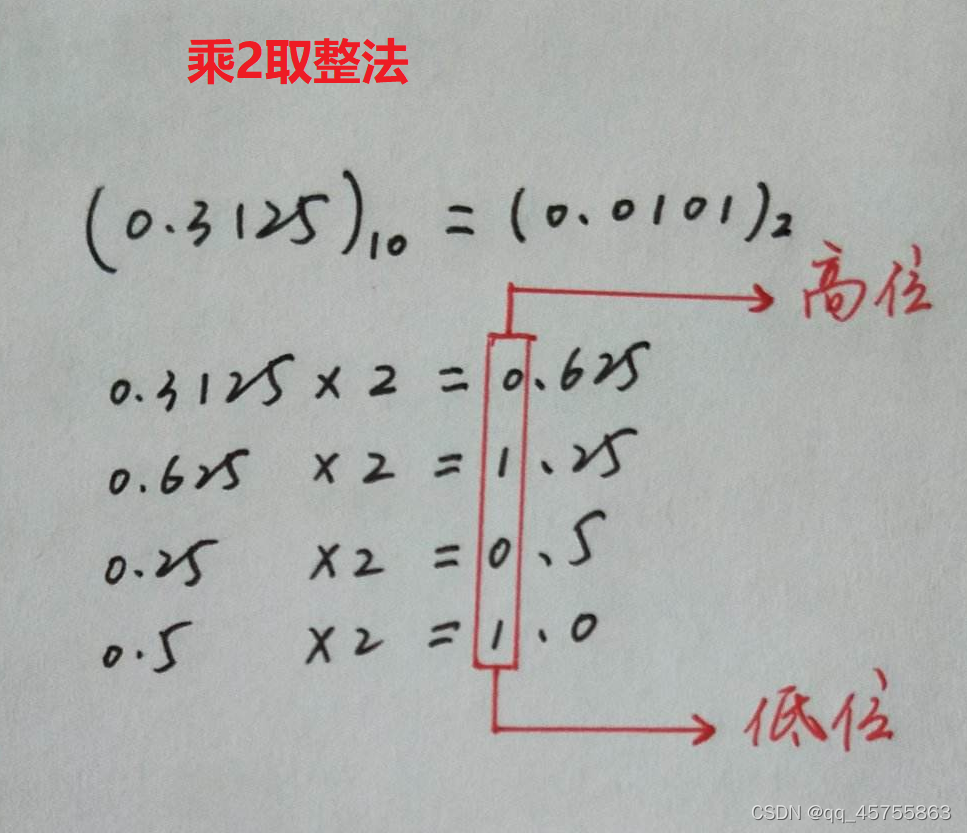 乘2取整法
(0.3125)₁₀ = (0.0101)₂
高位
0.3125 × 2 = 0.625
0.625 × 2 = 1.25
0.25 × 2 = 0.5
0.5 × 2 = 1.0
低位
CSDN @qq_45755863